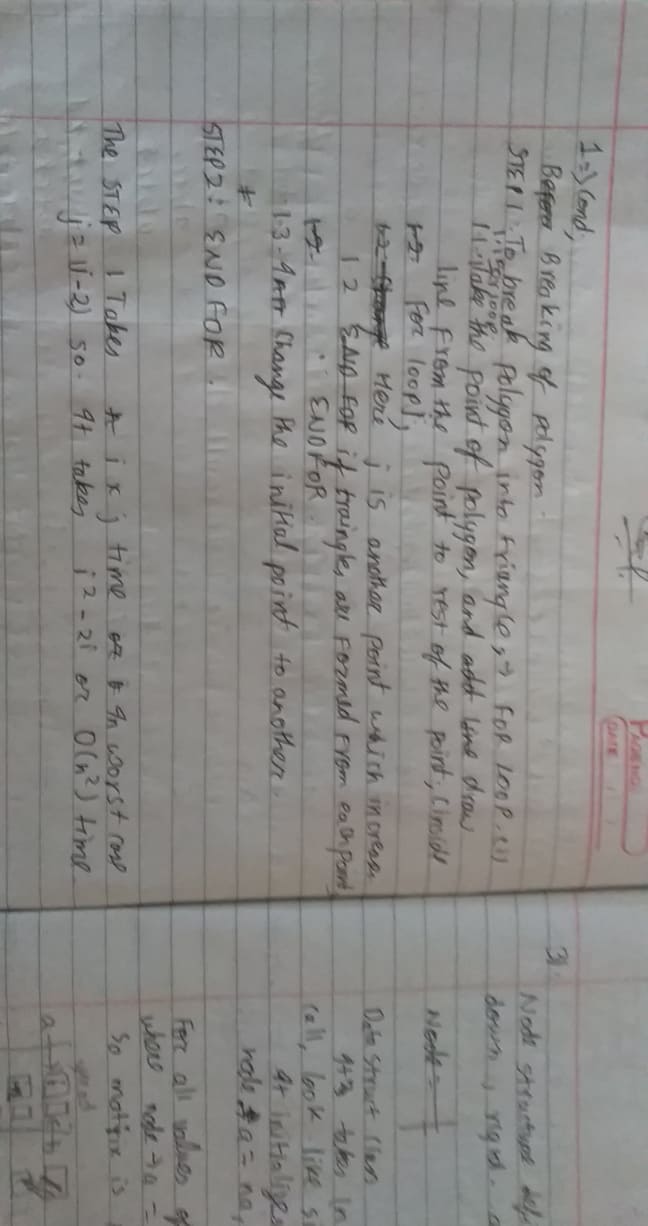 PAGE NO.
DATE
1=> Cond;
Before Breaking of polygon
STEP 1: To break polygon into triangle, → FOR LOOP. (i)
1.1. For loop
1.1. Take the point of polygon, and add line draw
line from the point to rest of the point; (inside
1.2. For loop);
1.2 Change Here j is another point which increase
1.2 END FOR if traingles are Formed From each point
1.2. END FOR.
1.3. Change the initial point to another.
STEP 2: END FOR.
The STEP 1 Takes i x j time or In worst case
j = (i-2) so It takes i² - 2i or O(n²) time
3)
Node structure
down, right.
Node =
Data struct
It takes In
call, look like
It initialize
node a =
For all values of
where node → a =
So matrix is
a